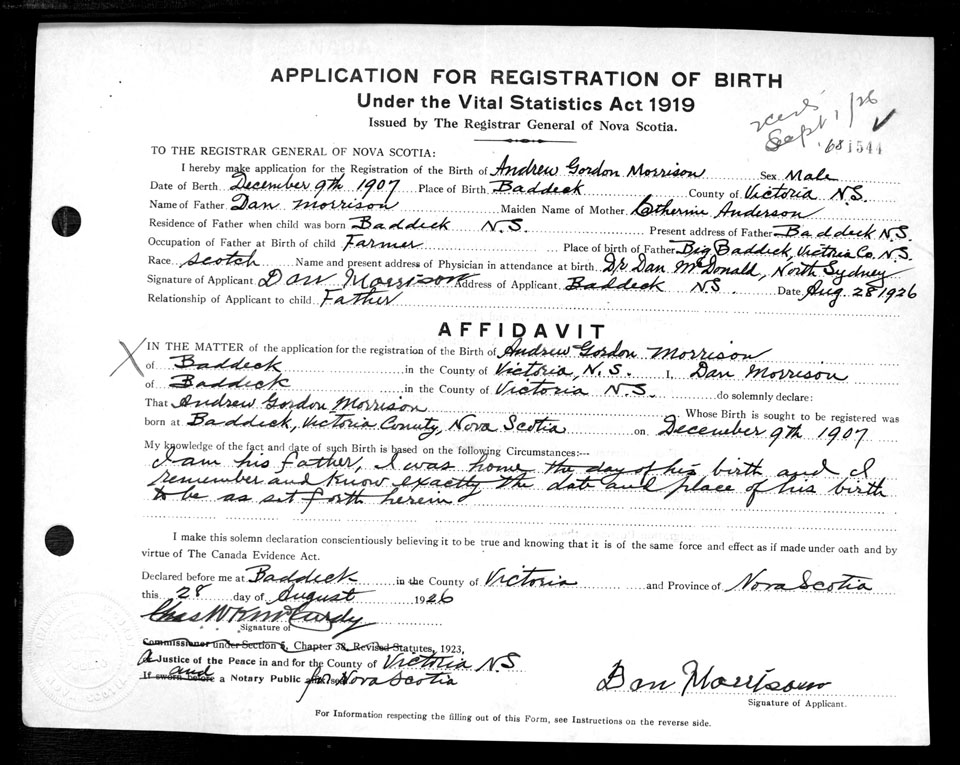 APPLICATION FOR REGISTRATION OF BIRTH
Under the Vital Statistics Act 1919
Issued by The Registrar General of Nova Scotia.
Sept. 1/26
681544
TO THE REGISTRAR GENERAL OF NOVA SCOTIA:
I hereby make application for the Registration of the Birth of Andrew Gordon Morrison Sex Male
Date of Birth December 9th 1907 Place of Birth Baddeck County of Victoria N.S.
Name of Father Dan Morrison Maiden Name of Mother Catherine Anderson
Residence of Father when child was born Baddeck N.S. Present address of Father Baddeck N.S.
Occupation of Father at Birth of child Farmer Place of birth of Father Big Baddeck, Victoria Co. N.S.
Race Scotch Name and present address of Physician in attendance at birth Dr. Dan McDonald, North Sydney
Signature of Applicant Dan Morrison Address of Applicant Baddeck N.S. Date Aug. 28 1926
Relationship of Applicant to child Father
AFFIDAVIT
X IN THE MATTER of the application for the registration of the Birth of Andrew Gordon Morrison
of Baddeck in the County of Victoria, N.S. I, Dan Morrison
of Baddeck in the County of Victoria N.S. do solemnly declare:
That Andrew Gordon Morrison Whose Birth is sought to be registered was
born at Baddeck, Victoria County, Nova Scotia on December 9th 1907
My knowledge of the fact and date of such Birth is based on the following Circumstances:—
I am his father, I was home the day of his birth and I
remember and know exactly the date and place of his birth
to be as set forth herein
I make this solemn declaration conscientiously believing it to be true and knowing that it is of the same force and effect as if made under oath and by
virtue of The Canada Evidence Act.
Declared before me at Baddeck in the County of Victoria and Province of Nova Scotia
this 28 day of August 1926
Chas W K McCurdy
Signature of
Commissioner under Section 5, Chapter 38, Revised Statutes, 1923,
A Justice of the Peace in and for the County of Victoria N.S.
If sworn before and a Notary Public for Nova Scotia
Dan Morrison
Signature of Applicant.
For Information respecting the filling out of this Form, see Instructions on the reverse side.